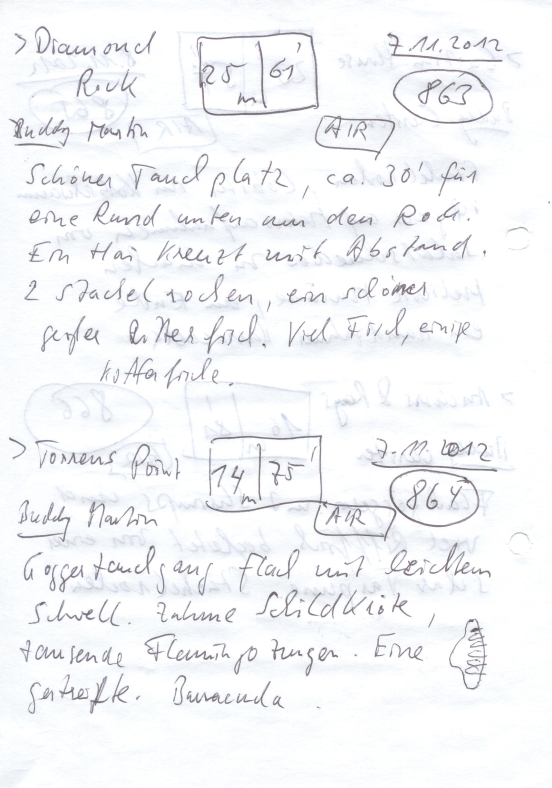 > Diamond Rock
25 m | 61'
7.11.2012
863
Buddy Martin
AIR
Schöner Tauchplatz, ca. 30' für
eine Rund unten um den Rock.
Ein Hai kreuzt mit Abstand.
2 Stachelrochen, ein schöner
großer Ritterfisch. Viel Fisch, einige
Kofferfische.
> Torrens Point
14 m | 75'
7.11.2012
864
Buddy Martin
AIR
tauchgang flach mit leichtem
Schwell. Zahme Schildkröte,
tausende Flamingozungen. Eine
Barracuda.